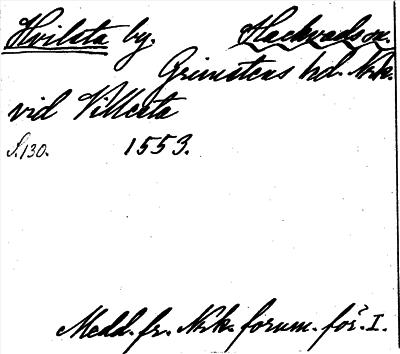 Hvilsta by. Hackvads sn.
Grimstens hd. Nrk.
vid Villesta
S. 130. 1553.
Medd. fr. Nrk. fornm. för. I.